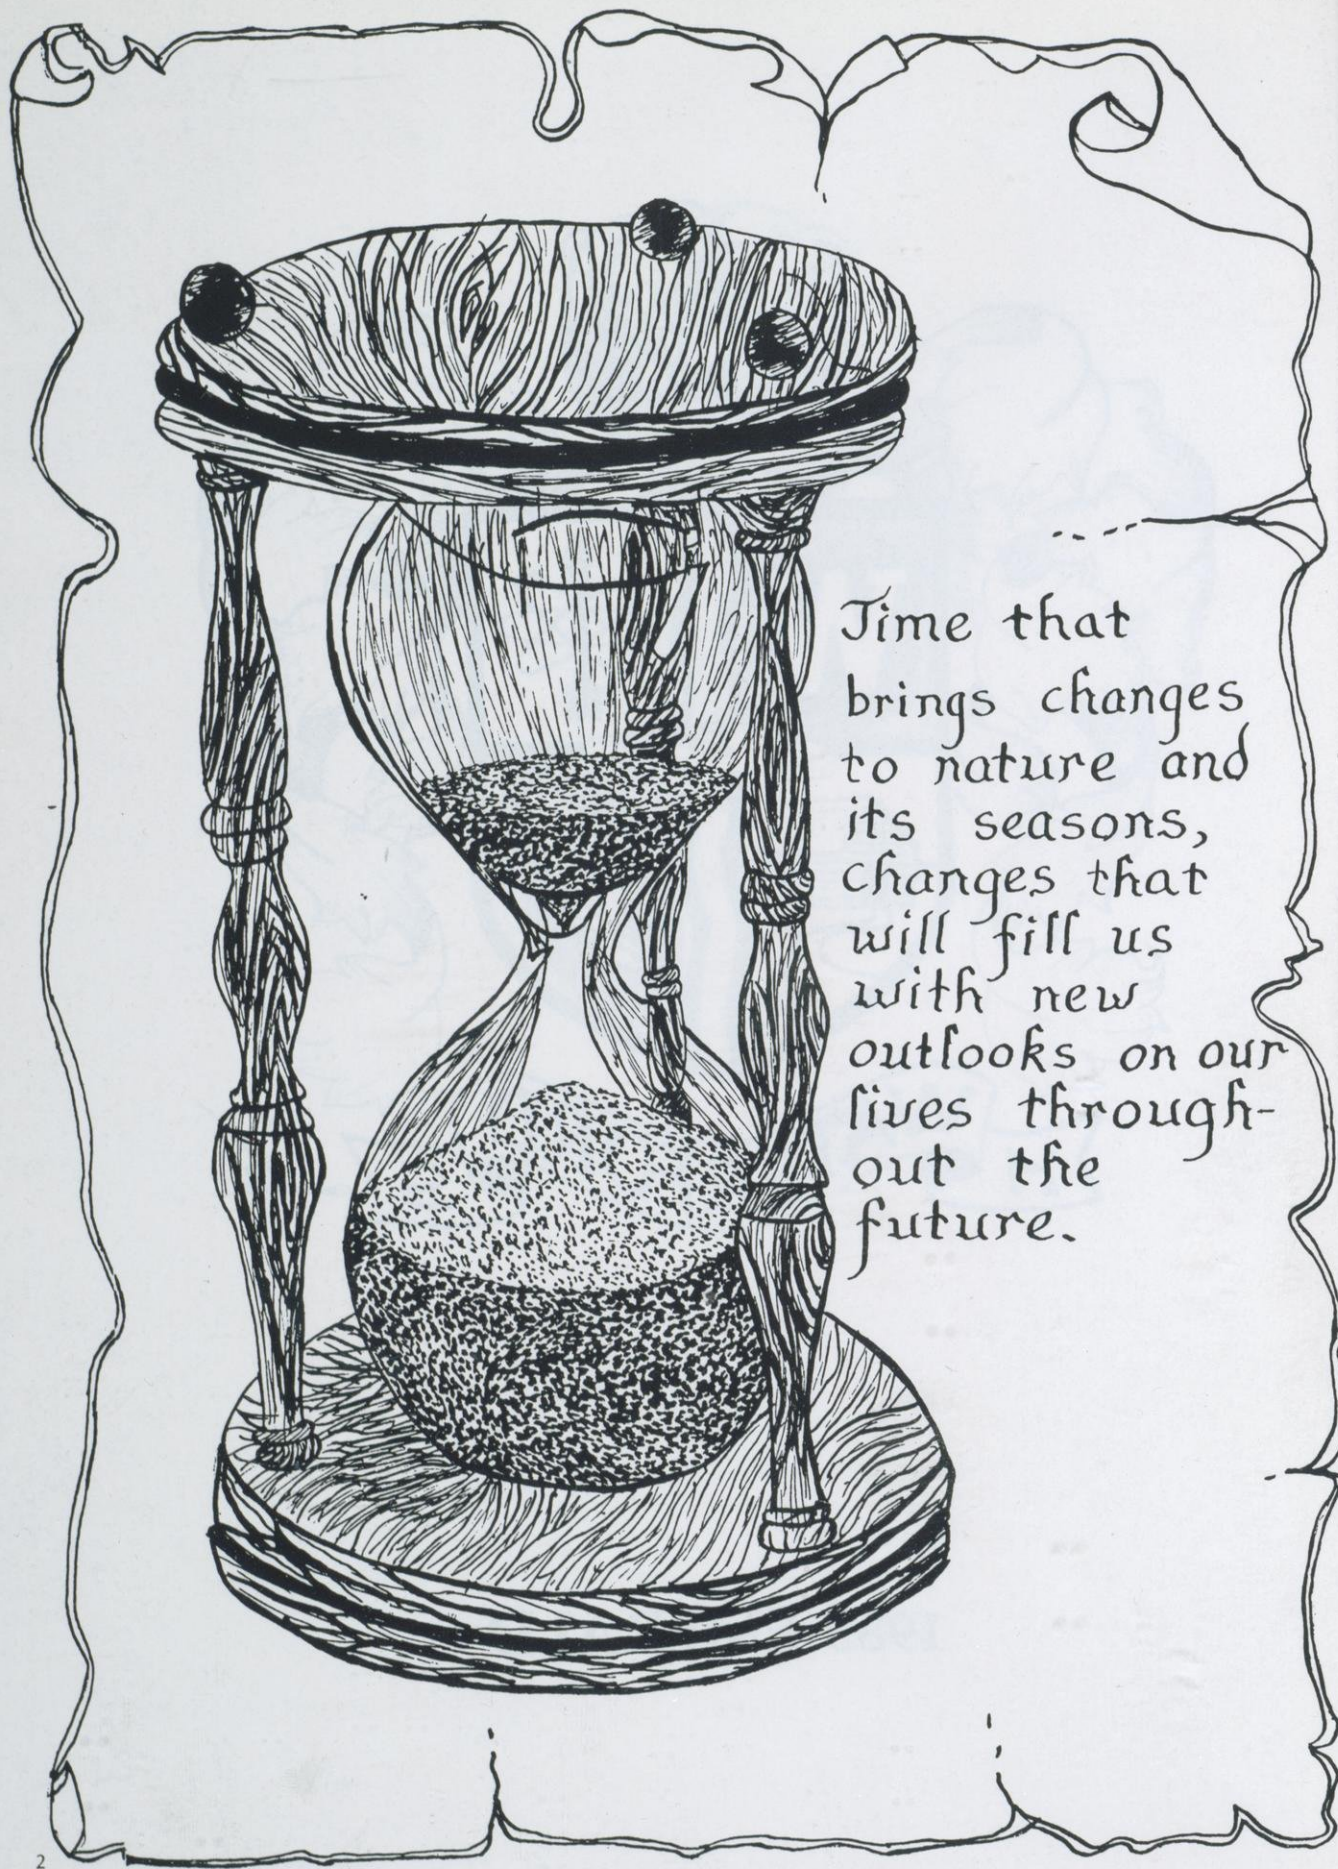 Time that
brings changes
to nature and
its seasons,
changes that
will fill us
with new
outlooks on our
lives through-
out the
future.
2